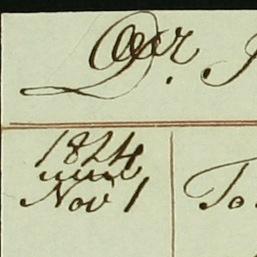 Dr.
1824
Nov 1
To